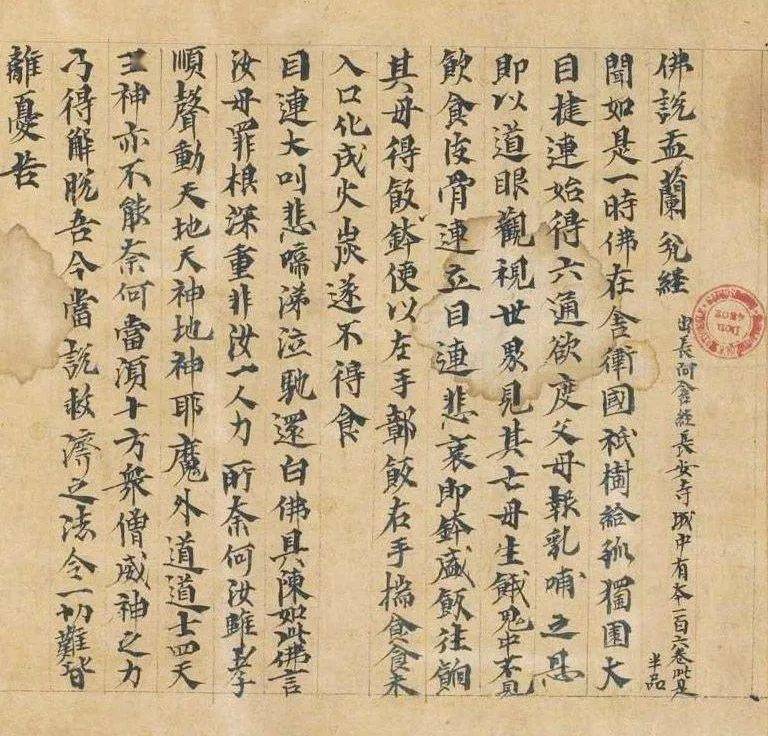 佛說盂蘭瓫経 出長阿含經長安寺城中有本一百六卷此是
半品
聞如是一時佛在舍衛國祇樹給孤獨園大
目揵連始得六通欲度父母報乳哺之恩
即以道眼觀視世界見其亡母生餓鬼中不見
飲食皮骨連立目連悲哀即鉢盛飯往餉
其母得飯鉢便以左手鄣飯右手揣食食未
入口化成火炭遂不得食
目連大叫悲啼涕泣馳還白佛具陳如此佛言
汝母罪根深重非汝一人力所奈何汝雖孝
順聲動天地天神地神耶魔外道道士四天
王神亦不能奈何當湏十方衆僧威神之力
乃得解脫吾今當說救濟之法令一切難皆
離憂苦